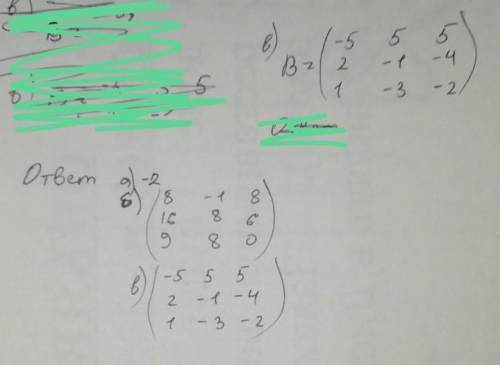 в)
B = ( -5 5 5
2 -1 -4
1 -3 -2 )
5
Ответ а) -2
б) ( 8 -1 8
16 8 6
9 8 0 )
в) ( -5 5 5
2 -1 -4
1 -3 -2 )